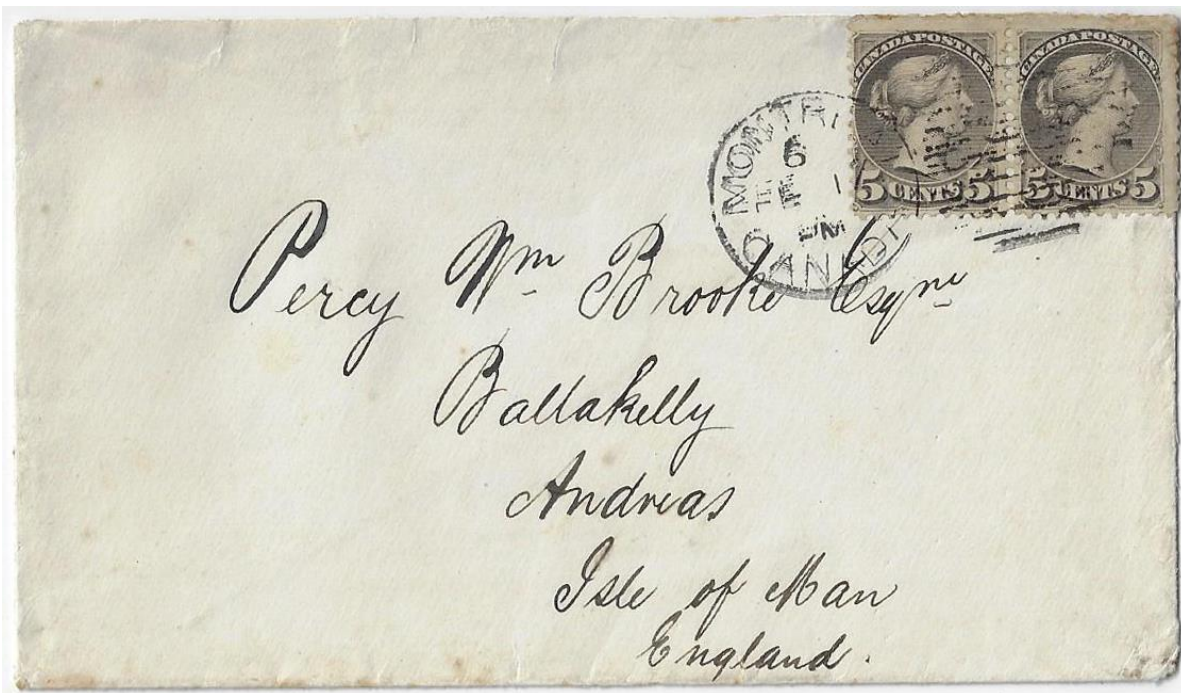 CANADA POSTAGE CANADA POSTAGE
5 CENTS 5 5 CENTS 5
MONTR
6
PM
CANADA
Percy Wm Brooke Esqre
Ballakelly
Andreas
Isle of Man
England.